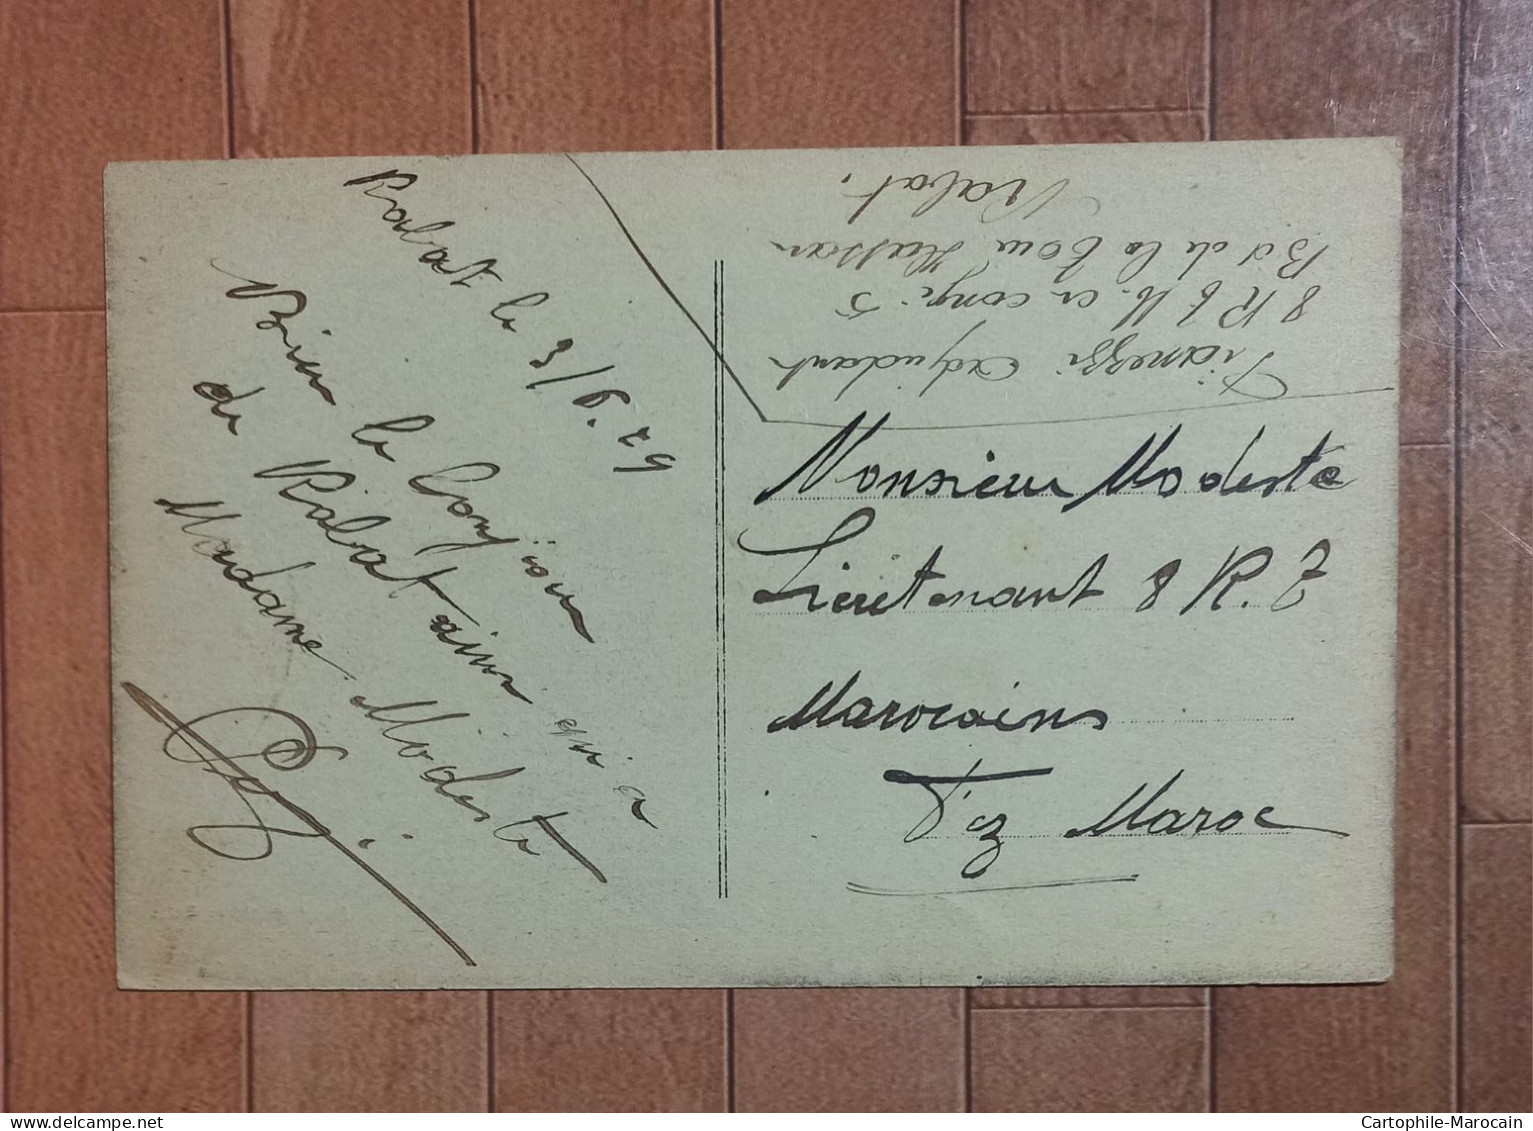 Rabat le 3/6.29
Bien le bonjour
de Rabat ainsi qu'a
Madame Modeste
adjudant
8 R T M. en congé 5
Bd de la Tour Hassan
Rabat.
Monsieur Modeste
Lieutenant 8 R. T
Marocains
Fez Maroc
delcampe.net
Cartophile-Marocain